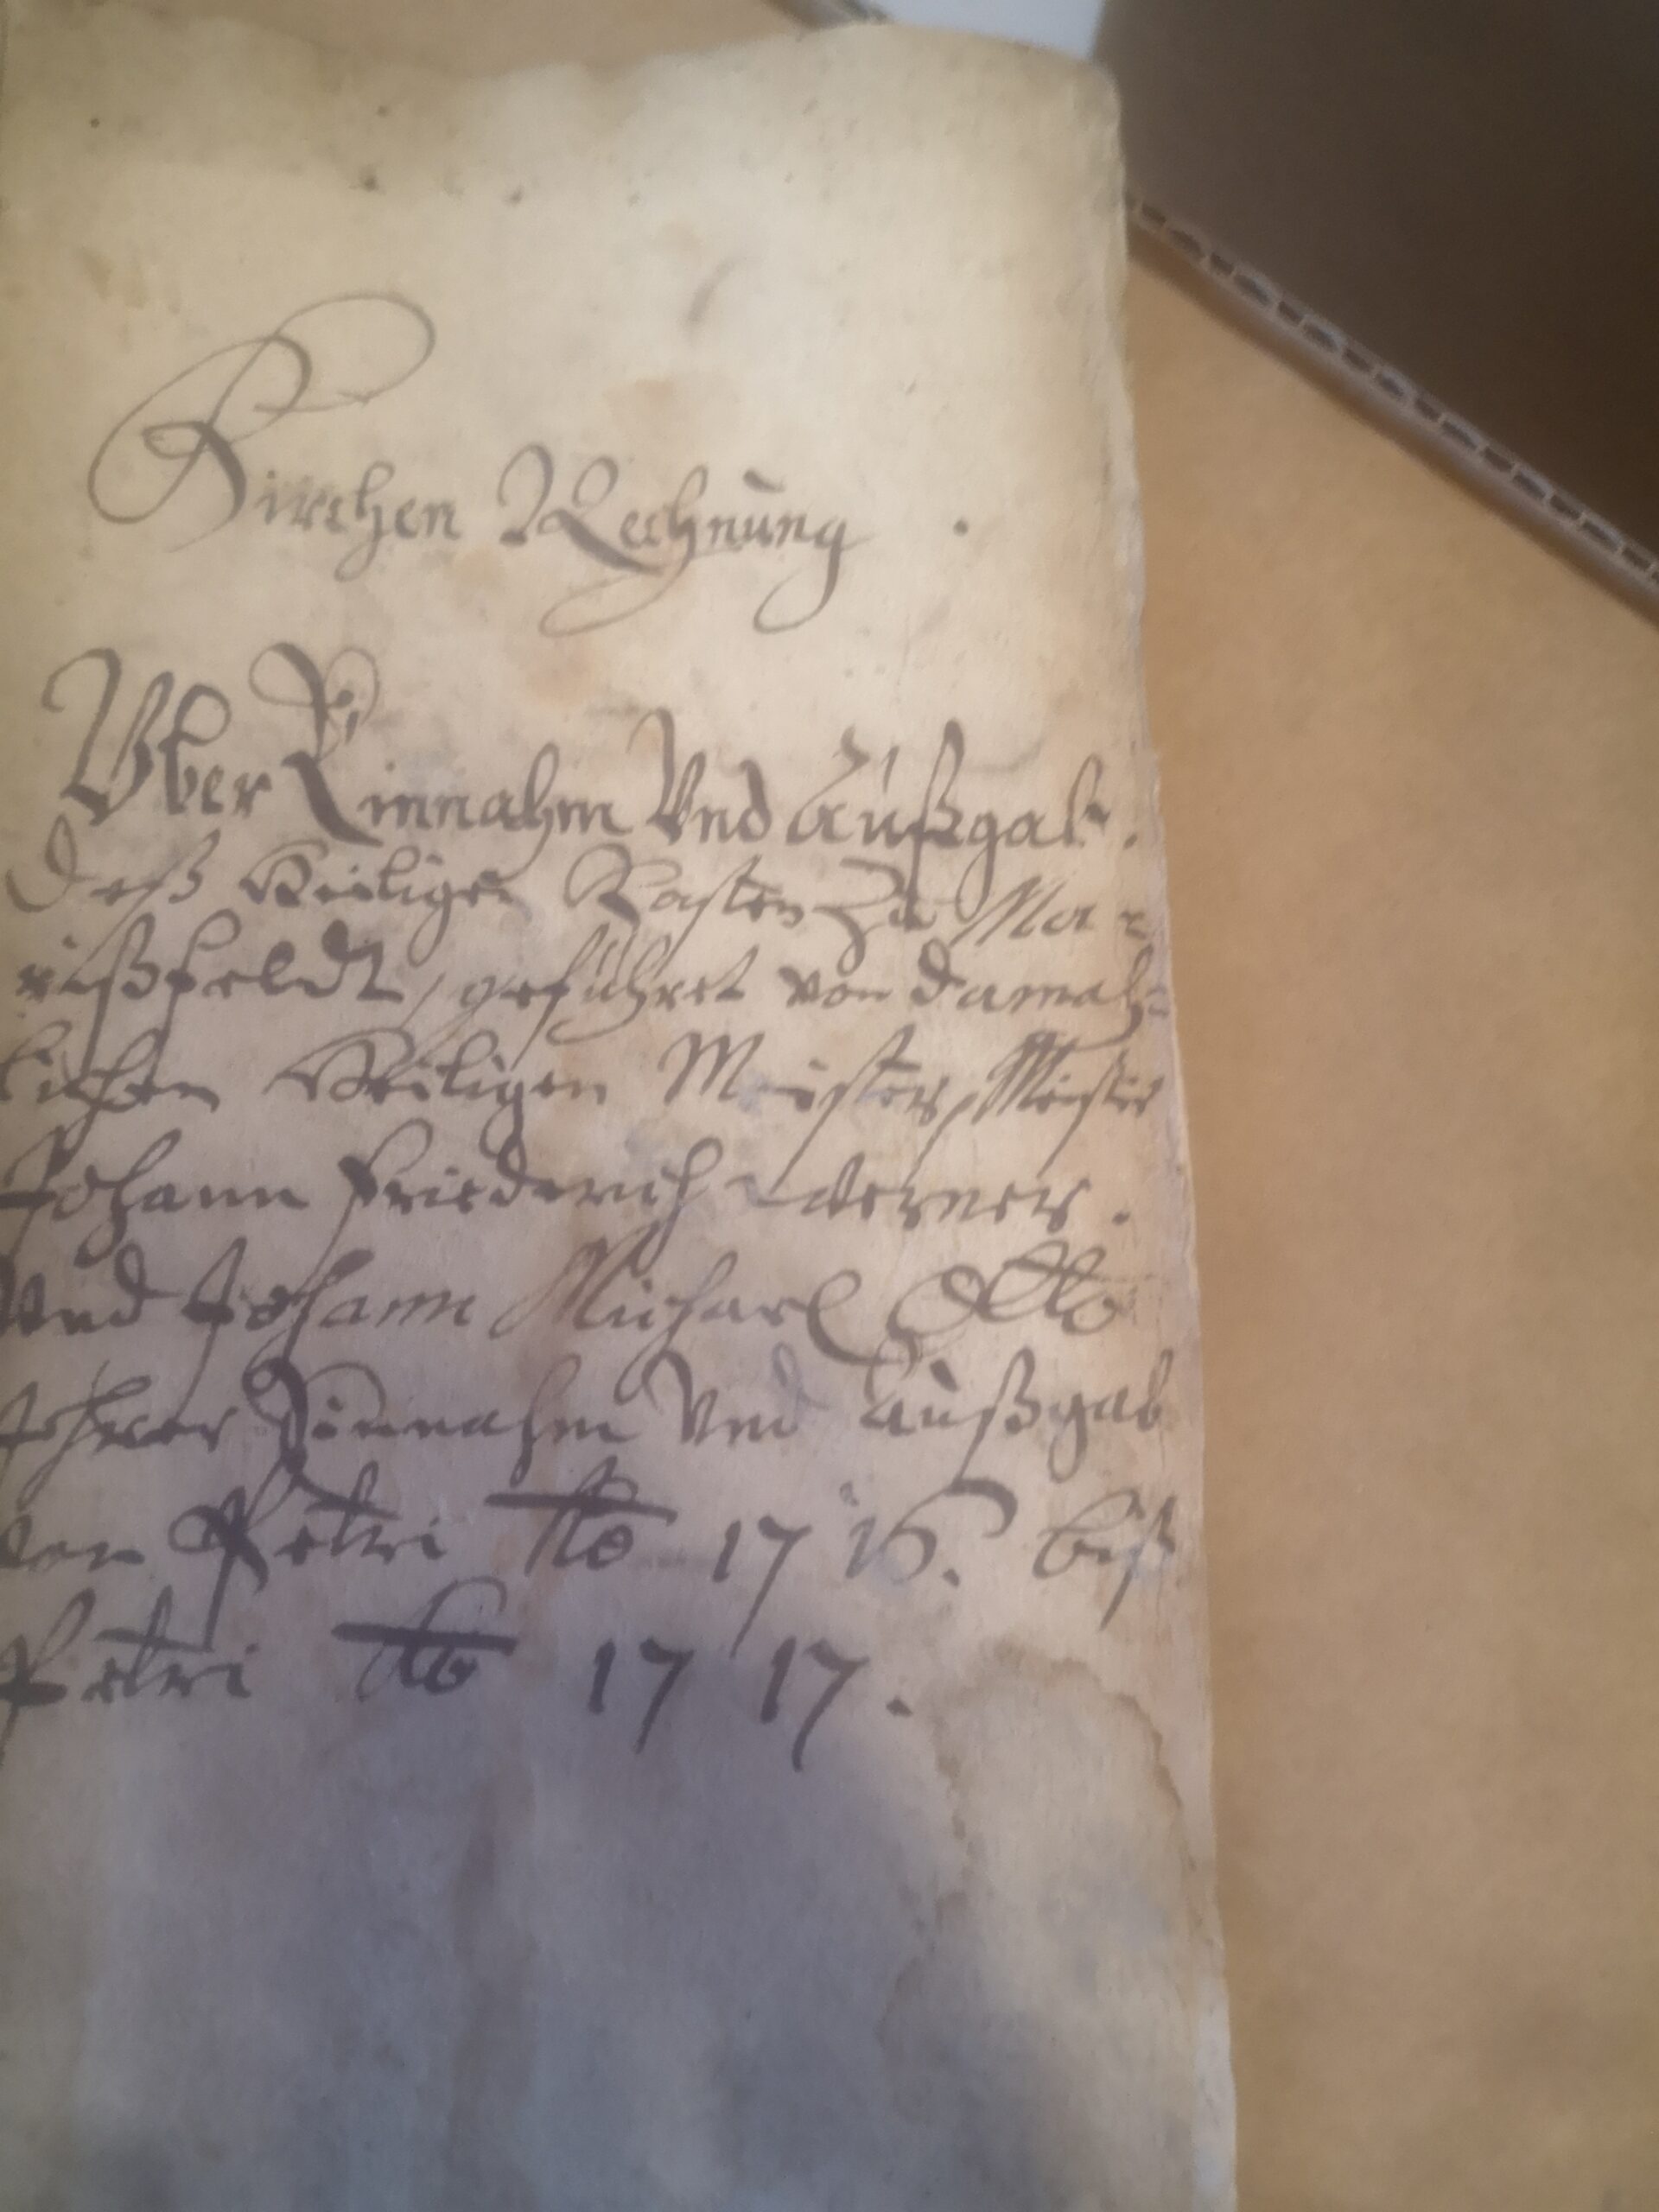 Kirchen Rechnung
Vber Einnahm Vnd Außgab.
Deß Heiligen Kasten Zu Mar=
rißfeldt, geführet von damah=
lichen Heiligen Meister, Meister
Johann Friederich Werner.
Vnd Johann Michael Otto
Ihrer Einnahm Vnd Außgab
von Petri Ao 1716. biß
Petri Ao 1717.